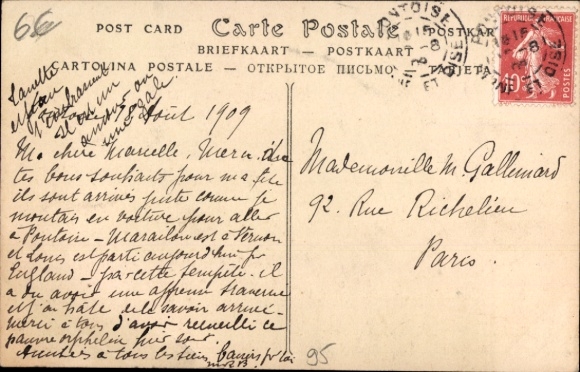 66
POST CARD Carte Postale POSTKARTE
BRIEFKAART - POSTKAART
CARTOLINA POSTALE - ОТКРЫТОЕ ПИСЬМО TARJETA
PONTOISE
RÉPUBLIQUE FRANÇAISE
10
Août 1909
Ma chère Marcelle, Merci de
tes bons souhaits pour ma fête
ils sont arrivés juste comme je
montais en voiture pour aller
à Pontoise - est à Vernon
et Louis est parti aujourd'hui pr
England - par cette tempête. il
a du avoir une affreuse traversée
et j'ai hâte de le savoir arrivé -
merci à tous d'avoir recueilli ce
pauvre orphelin hier soir.
Amitiés à tous les tiens pr toi
Mademoiselle M. Gallimard
92. Rue Richelieu
Paris.
95